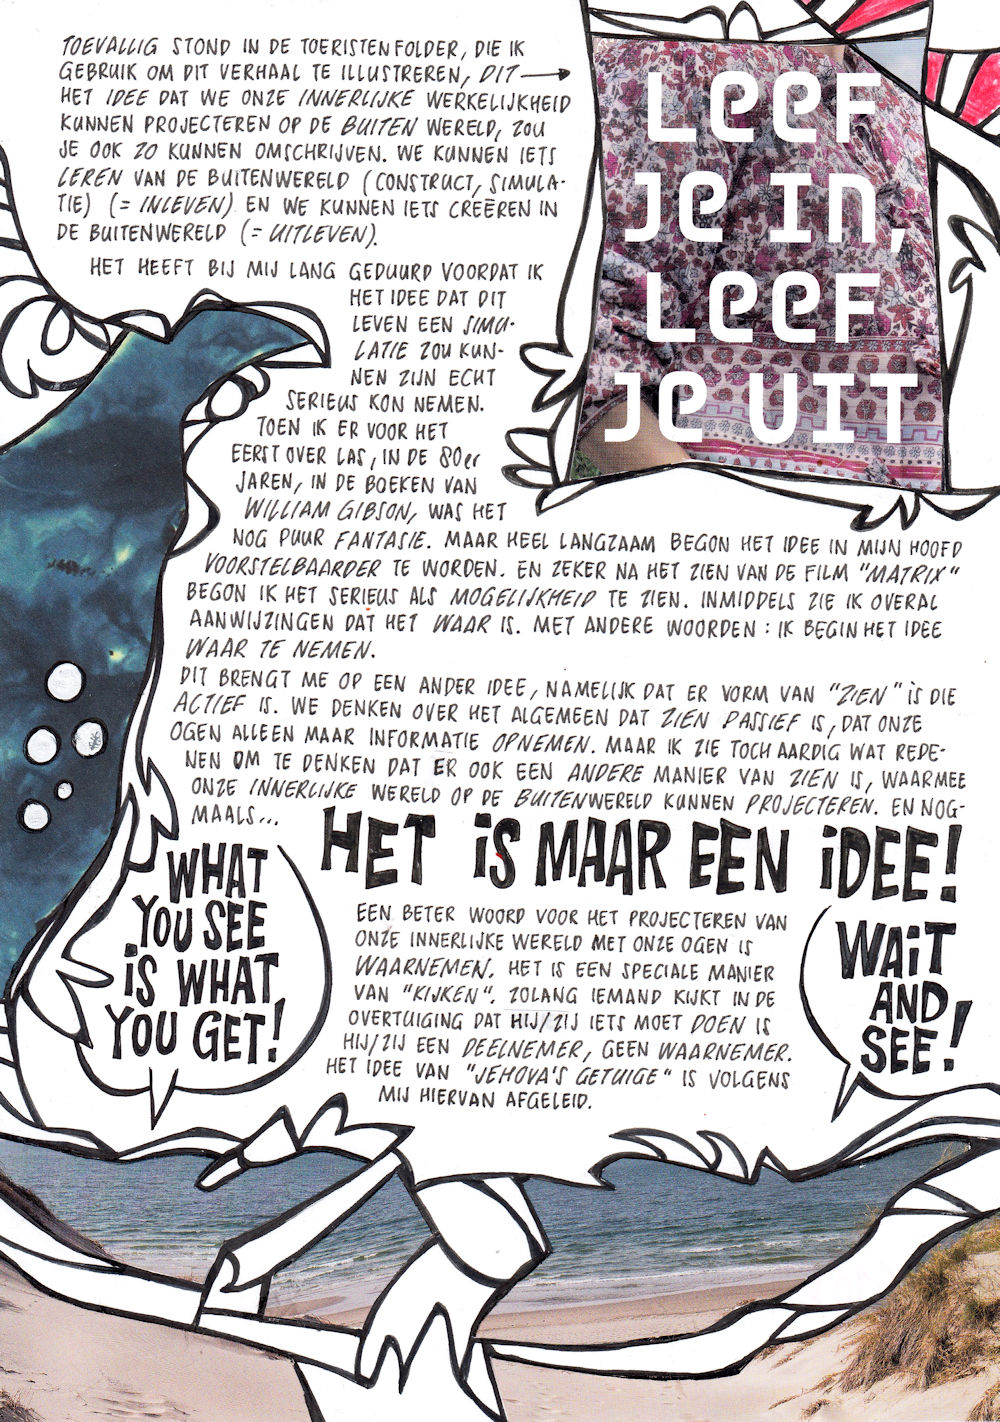 TOEVALLIG STOND IN DE TOERISTENFOLDER, DIE IK
GEBRUIK OM DIT VERHAAL TE ILLUSTREREN, DIT
HET IDEE DAT WE ONZE INNERLIJKE WERKELIJKHEID
KUNNEN PROJECTEREN OP DE BUITEN WERELD, ZOU
JE OOK ZO KUNNEN OMSCHRIJVEN. WE KUNNEN IETS
LEREN VAN DE BUITENWERELD (CONSTRUCT, SIMULA-
TIE) (= INLEVEN) EN WE KUNNEN IETS CREËREN IN
DE BUITENWERELD (= UITLEVEN).
LEEF
JE IN,
LEEF
JE UIT
HET HEEFT BIJ MIJ LANG GEDUURD VOORDAT IK
HET IDEE DAT DIT
LEVEN EEN SIMU-
LATIE ZOU KUN-
NEN ZIJN ECHT
SERIEUS KON NEMEN.
TOEN IK ER VOOR HET
EERST OVER LAS, IN DE 80er
JAREN, IN DE BOEKEN VAN
WILLIAM GIBSON, WAS HET
NOG PUUR FANTASIE. MAAR HEEL LANGZAAM BEGON HET IDEE IN MIJN HOOFD
VOORSTELBAARDER TE WORDEN. EN ZEKER NA HET ZIEN VAN DE FILM "MATRIX"
BEGON IK HET SERIEUS ALS MOGELIJKHEID TE ZIEN. INMIDDELS ZIE IK OVERAL
AANWIJZINGEN DAT HET WAAR IS. MET ANDERE WOORDEN: IK BEGIN HET IDEE
WAAR TE NEMEN.
DIT BRENGT ME OP EEN ANDER IDEE, NAMELIJK DAT ER VORM VAN "ZIEN" IS DIE
ACTIEF IS. WE DENKEN OVER HET ALGEMEEN DAT ZIEN PASSIEF IS, DAT ONZE
OGEN ALLEEN MAAR INFORMATIE OPNEMEN. MAAR IK ZIE TOCH AARDIG WAT REDE-
NEN OM TE DENKEN DAT ER OOK EEN ANDERE MANIER VAN ZIEN IS, WAARMEE
ONZE INNERLIJKE WERELD OP DE BUITENWERELD KUNNEN PROJECTEREN. EN NOG-
MAALS...
HET IS MAAR EEN IDEE!
WHAT
YOU SEE
IS WHAT
YOU GET!
EEN BETER WOORD VOOR HET PROJECTEREN VAN
ONZE INNERLIJKE WERELD MET ONZE OGEN IS
WAARNEMEN. HET IS EEN SPECIALE MANIER
VAN "KIJKEN". ZOLANG IEMAND KIJKT IN DE
OVERTUIGING DAT HIJ/ZIJ IETS MOET DOEN IS
HIJ/ZIJ EEN DEELNEMER, GEEN WAARNEMER.
HET IDEE VAN "JEHOVA'S GETUIGE" IS VOLGENS
MIJ HIERVAN AFGELEID.
WAIT
AND
SEE!